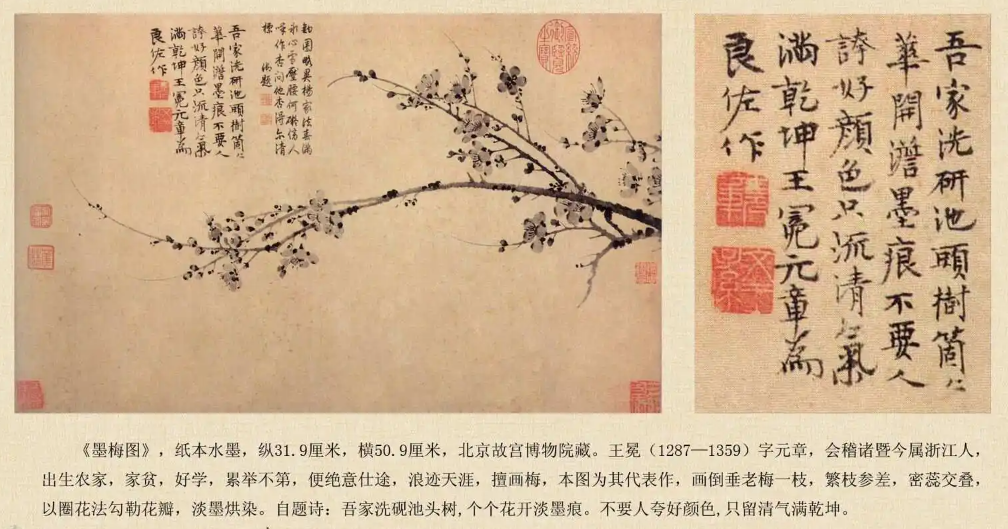 勾圈略異楊家法春滿
冰心雪壓腰何礙傍人
呼作杏問他杏得尔清
標 御題
吾家洗研池頭樹箇〻
華開澹墨痕不要人
誇好顏色只流清氣
滿乾坤王冕元章為
良佐作
吾家洗研池頭樹箇〻
華開澹墨痕不要人
誇好顏色只流清氣
滿乾坤王冕元章為
良佐作
《墨梅图》，纸本水墨，纵31.9厘米，横50.9厘米，北京故宫博物院藏。王冕（1287—1359）字元章，会稽诸暨今属浙江人，
出生农家，家贫，好学，累举不第，便绝意仕途，浪迹天涯，擅画梅，本图为其代表作，画倒垂老梅一枝，繁枝参差，密蕊交叠，
以圈花法勾勒花瓣，淡墨烘染。自题诗：吾家洗砚池头树,个个花开淡墨痕。不要人夸好颜色,只留清气满乾坤。